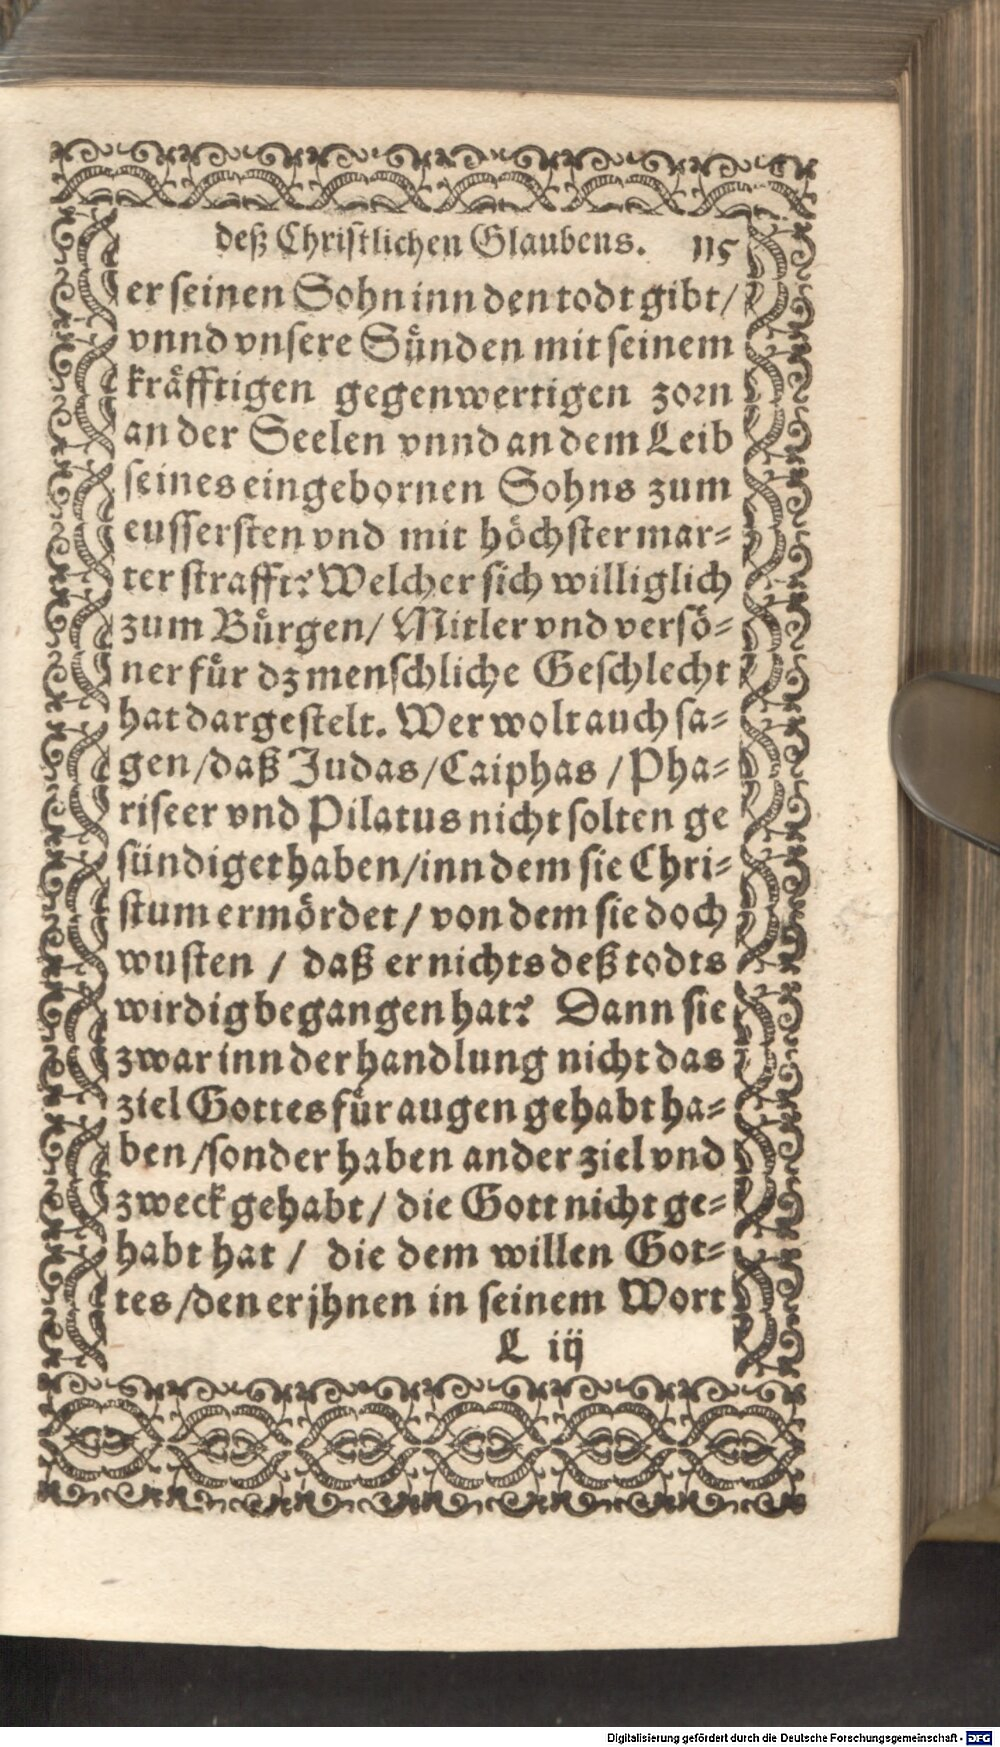 deß Christlichen Glaubens. 115
er seinen Sohn inn den todt gibt/
vnnd vnsere Sünden mit seinem
kräfftigen gegenwertigen zorn
an der Seelen vnnd an dem Leib
seines eingebornen Sohns zum
eussersten vnd mit höchster mar-
ter strafft? Welcher sich williglich
zum Bürgen/ Mitler vnd versö-
ner für dz menschliche Geschlecht
hat dargestelt. Wer wolt auch sa-
gen/daß Judas/Caiphas /Pha-
riseer vnd Pilatus nicht solten ge
sündiget haben/inn dem sie Chri-
stum ermördet/ von dem sie doch
wusten / daß er nichts deß todts
wirdig begangen hat? Dann sie
zwar inn der handlung nicht das
ziel Gottes für augen gehabt ha-
ben/sonder haben ander ziel vnd
zweck gehabt/ die Gott nicht ge-
habt hat / die dem willen Got-
tes/den er jhnen in seinem Wort
L iij
Digitalisierung gefördert durch die Deutsche Forschungsgemeinschaft - DFG